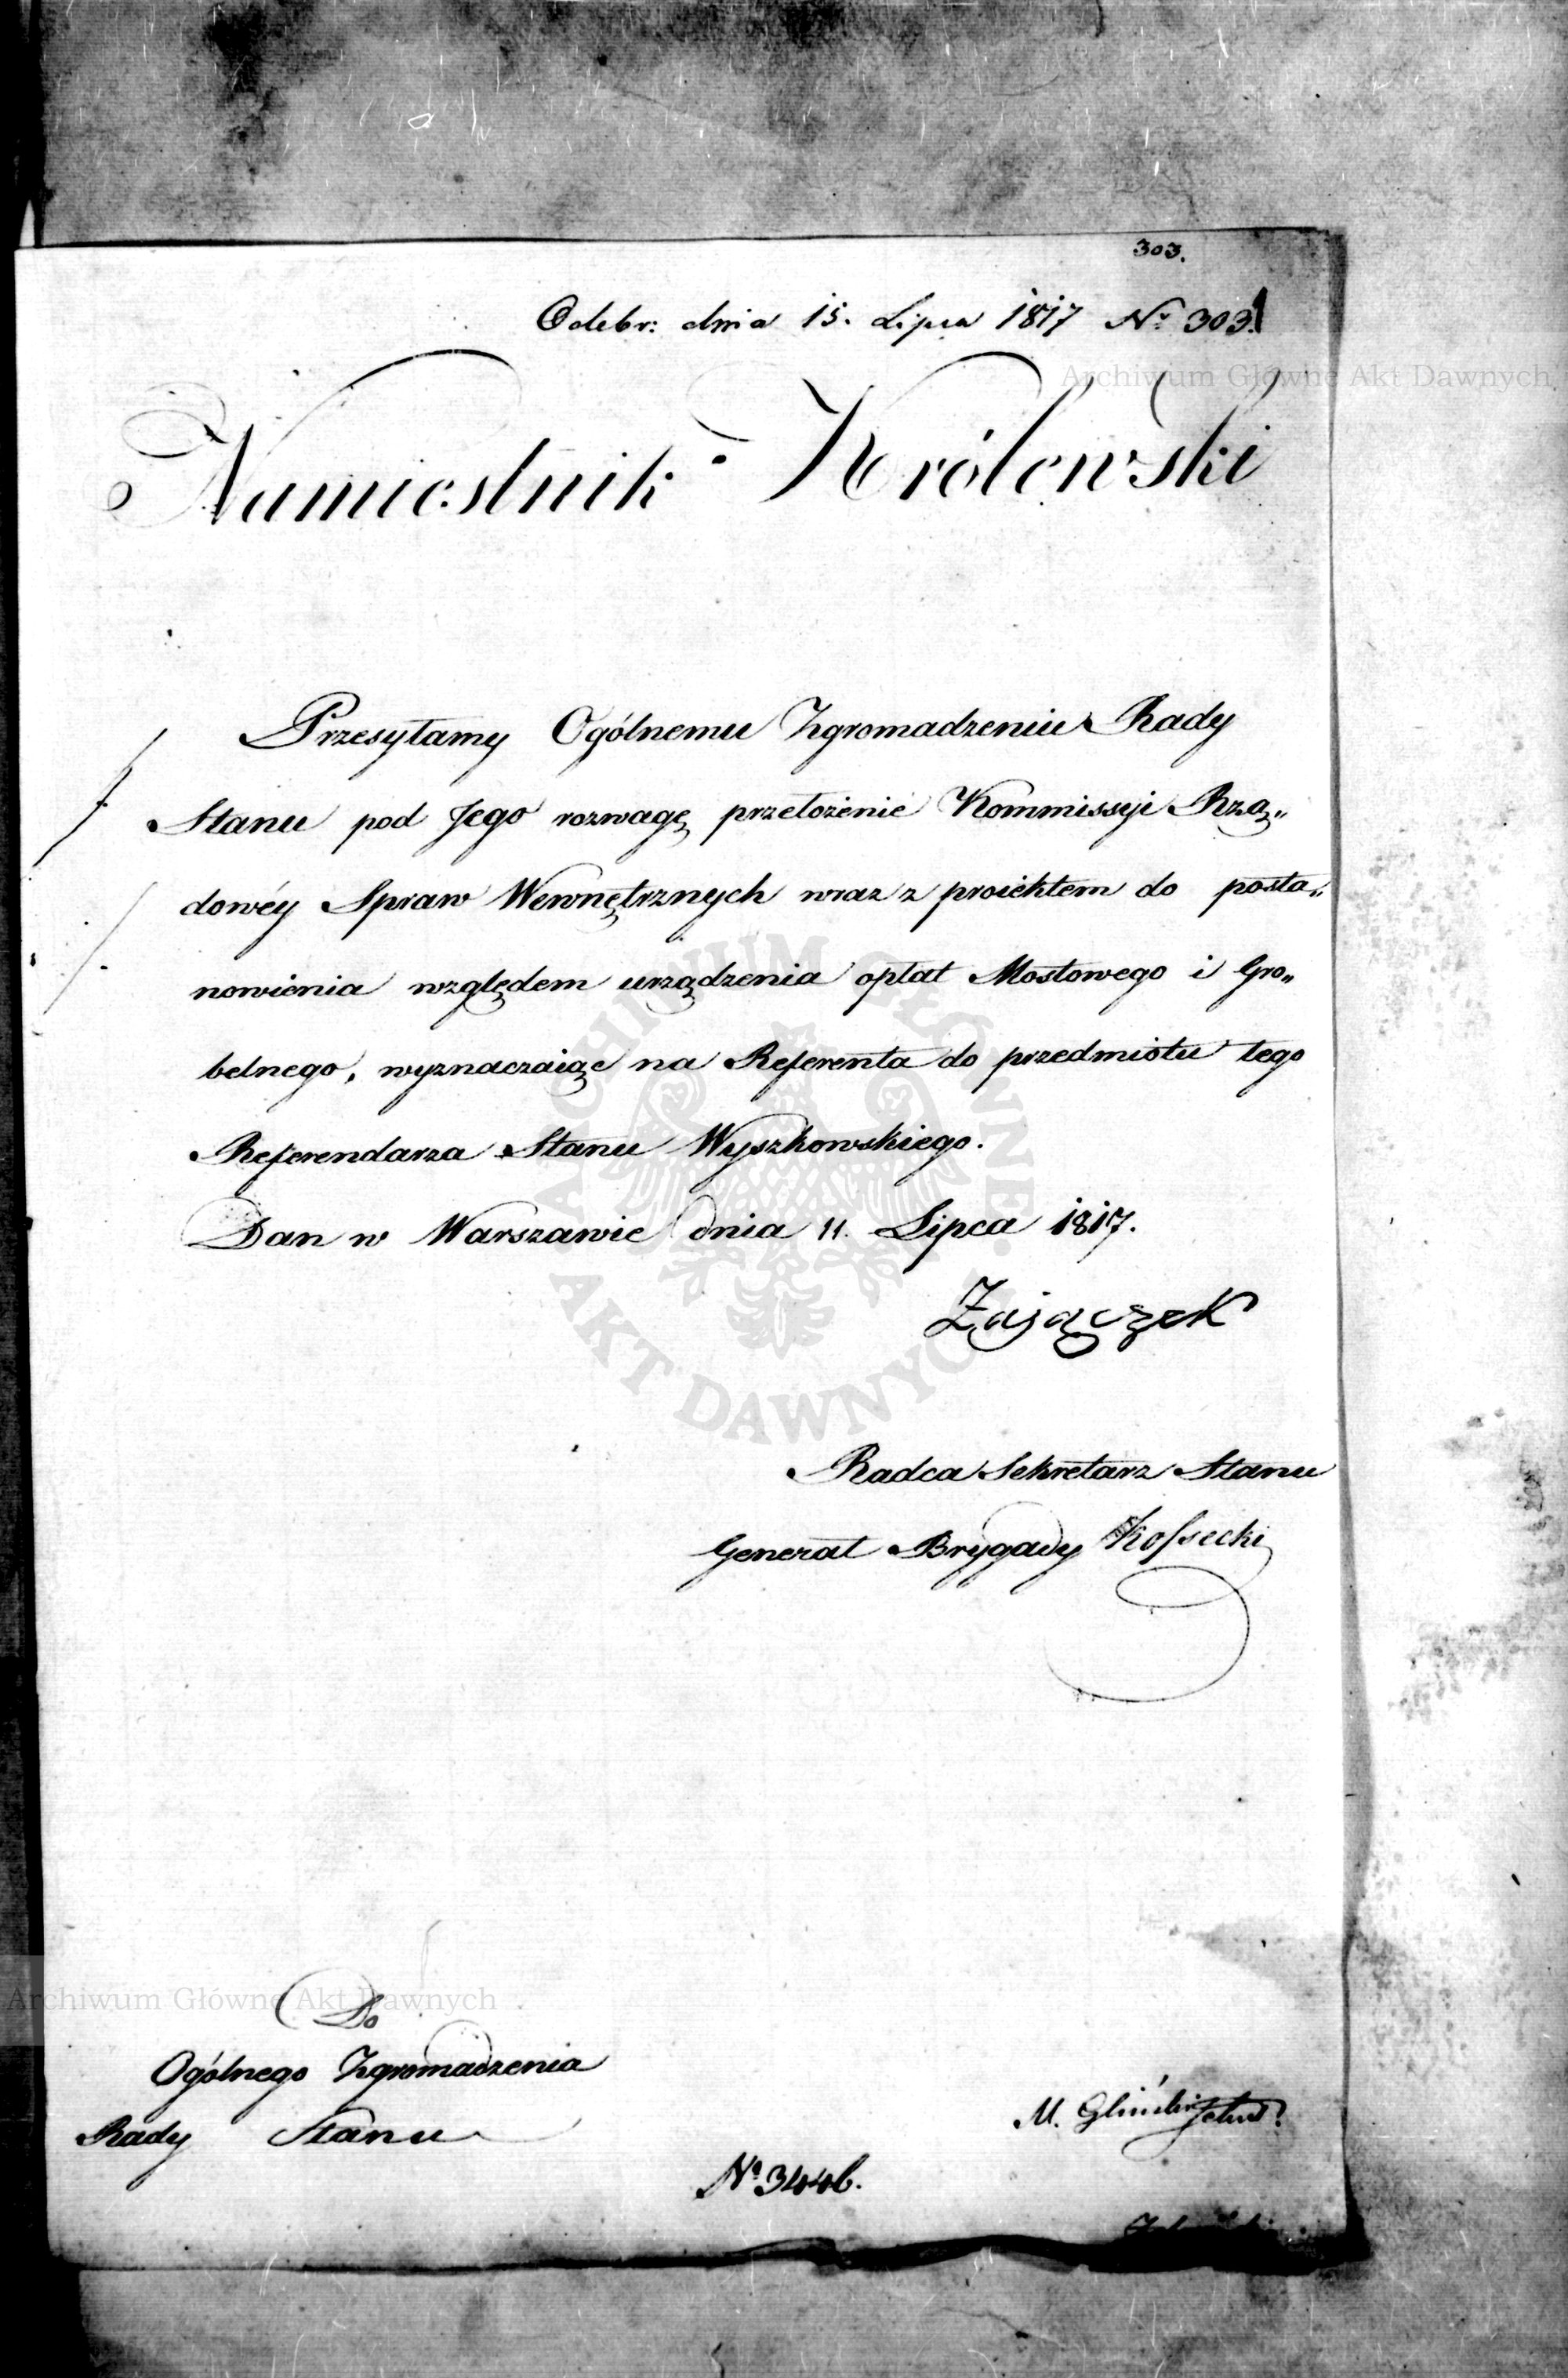 303.
Odebr: dnia 15. Lipca 1817 Nr 303.
Archiwum Główne Akt Dawnych
Namiestnik Królewski
Przesyłamy Ogólnemu Zgromadzeniu Rady
Stanu pod Jego rozwagę przełożenie Kommissyi Rzą„
dowéy Spraw Wewnętrznych wraz z proiektem do posta„
nowienia względem urządzenia opłat Mostowego i Gro„
belnego, wyznaczaiąc na Referenta do przedmiotu tego
Referendarza Stanu Wyszkowskiego.
Dan w Warszawie dnia 11. Lipca 1817.
Zajączek
ARCHIWUM GŁÓWNE AKT DAWNYCH
Radca Sekretarz Stanu
Generał Brygady Kossecki
Archiwum Główne Akt Dawnych
Do
Ogólnego Zgromadzenia
Rady Stanu
M.
No 3446.